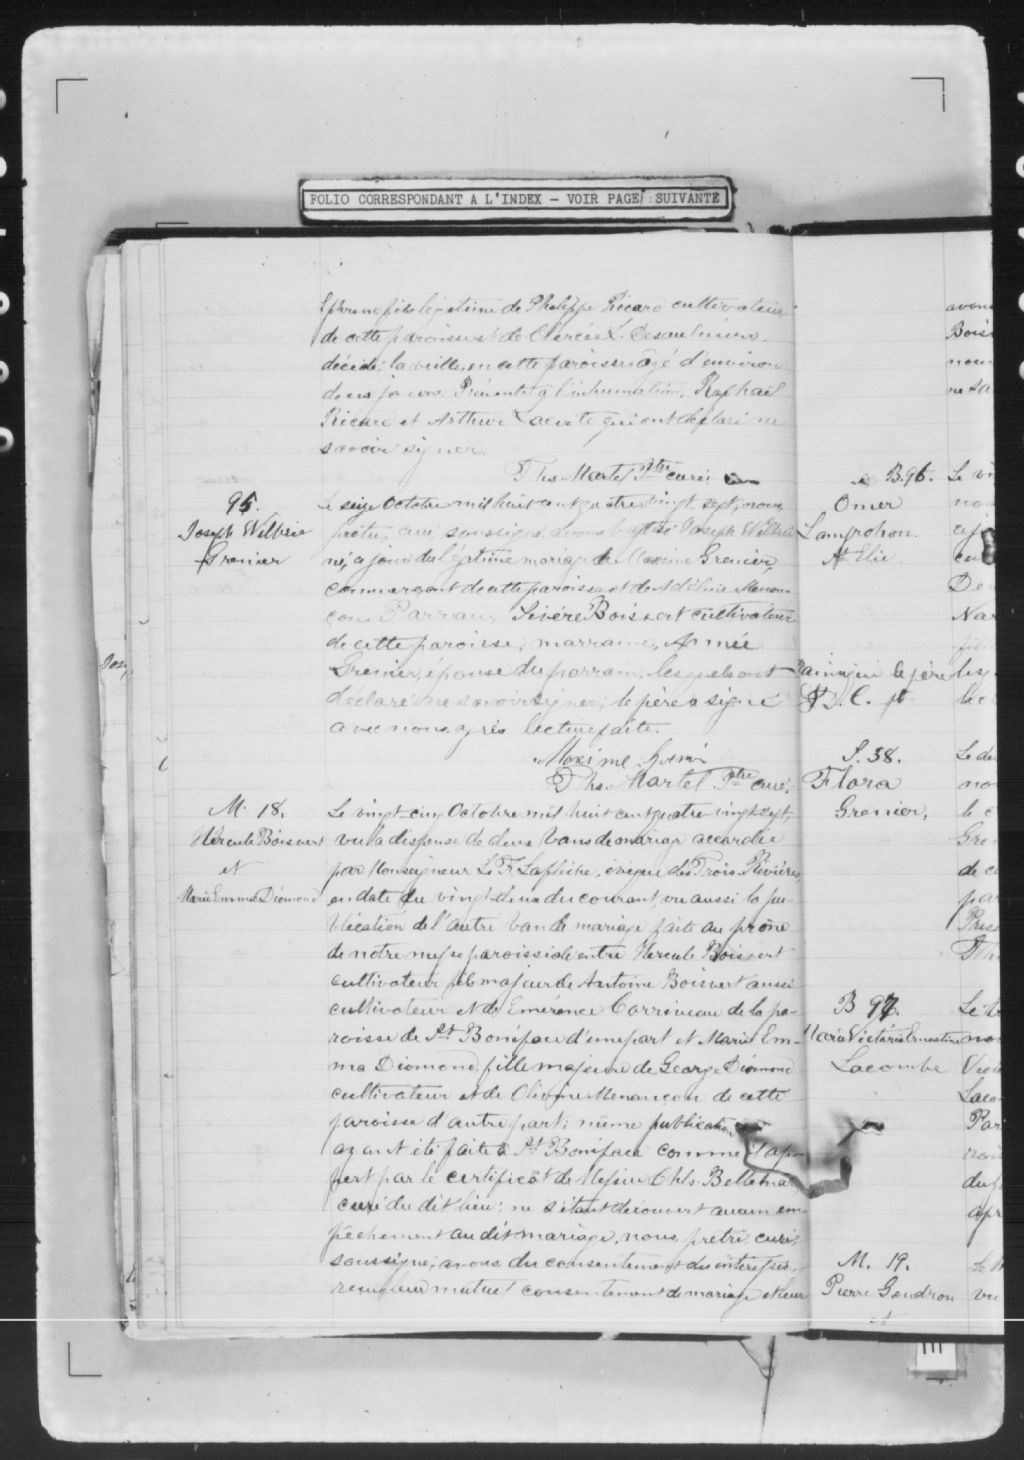 FOLIO CORRESPONDANT A L'INDEX - VOIR PAGE SUIVANTE
fils légitime de Philippe Ricard cultivateur
de cette paroisse et de L. Desaulniers
décédé la veille, en cette paroisse âgé d'environ
jours. Présents à l'inhumation, Raphaël
Ricard et Arthur qui ont déclaré ne
savoir signer.
Ths Martel Ptre curé
95.
Joseph Wilbrie
Grenier
Le seize Octobre mil huit cent quatre vingt sept, nous
prêtre, curé, soussigné avons baptisé Joseph Wilbrie
né, ce jour du légitime mariage de Maxime Grenier,
commerçant de cette paroisse et de Adéline Menan-
çon. Parrain, Sévère Boisvert cultivateur
de cette paroisse, marraine, Aimée
Grenier, épouse du parrain, lesquels ont
déclaré ne savoir signer; le père a signé
avec nous après lecture faite.
Maxime Grenier
Ths. Martel Ptre curé.
M. 18.
Hercule Boisvert
et
Marie Emma Diamond
Le vingt-cinq Octobre mil huit cent quatre-vingt-sept,
vu la dispense de deux bans de mariage accordée
par Monseigneur L. F. Laflèche, évêque des Trois Rivières,
en date du vingt-deux du courant, vu aussi la pu-
blication de l'autre ban de mariage faite au prône
de notre messe paroissiale entre Hercule Boisvert
cultivateur fils majeur de Antoine Boisvert aussi
cultivateur et de Emérence Corriveau de la pa-
roisse de St Boniface d'une part et Marie Em-
ma Diamond fille majeure de George Diamond
cultivateur et de Olivine Menançon de cette
paroisse d'autre part; même publication
ayant été faite à St Boniface comme il ap-
pert par le certificat de Messire Chls. Bellemare
curé du dit lieu; ne s'étant découvert aucun em-
pêchement au dit mariage, nous, prêtre, curé,
soussigné, avons du consentement des intéressés,
reçu leur mutuel consentement de mariage et leur
B. 96.
Omer
Lampron
St Elie
le père
S. 38.
Flora
Grenier,
B 97.
Maria Victoria Ernestine
Lacombe
M. 19.
Pierre Gendron
et